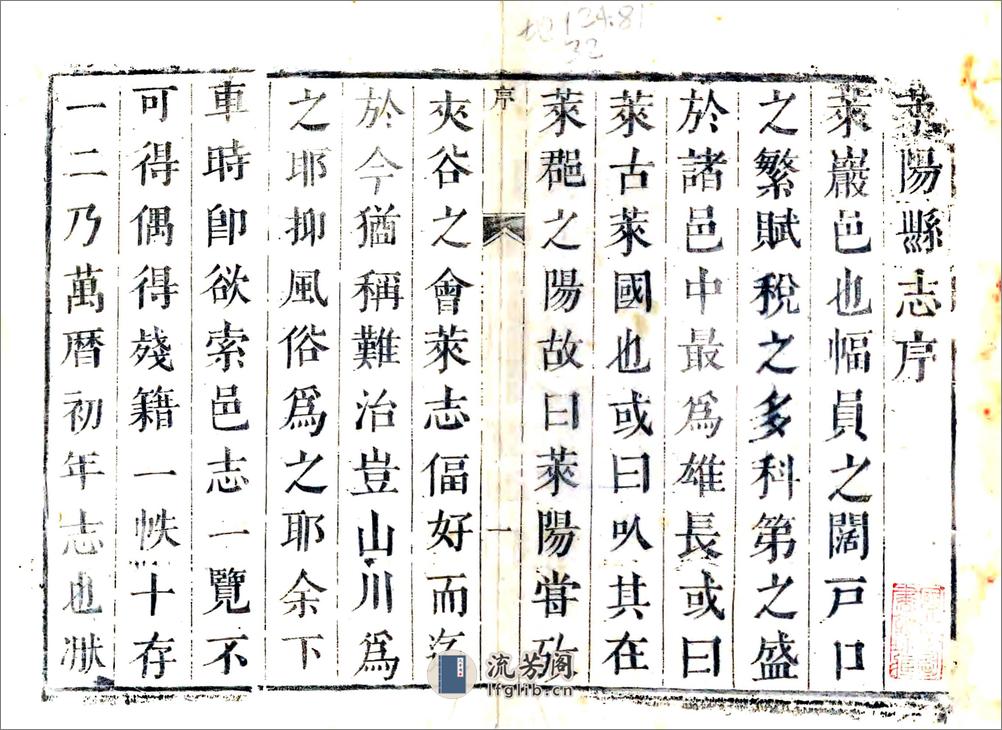 萊陽縣志序
萊巖邑也幅員之闊戸口
之繁賦稅之多科第之盛
於諸邑中最爲雄長或曰
萊古萊國也或曰以其在
萊郡之陽故曰萊陽嘗攷
序
一
夾谷之會萊志偪好而迄
於今猶稱難治豈山川爲
之耶抑風俗爲之耶余下
車時卽欲索邑志一覽不
可得偶得殘籍一帙十存
一二乃萬曆初年志也
124.81
32
流芳阁
lfglib.cn